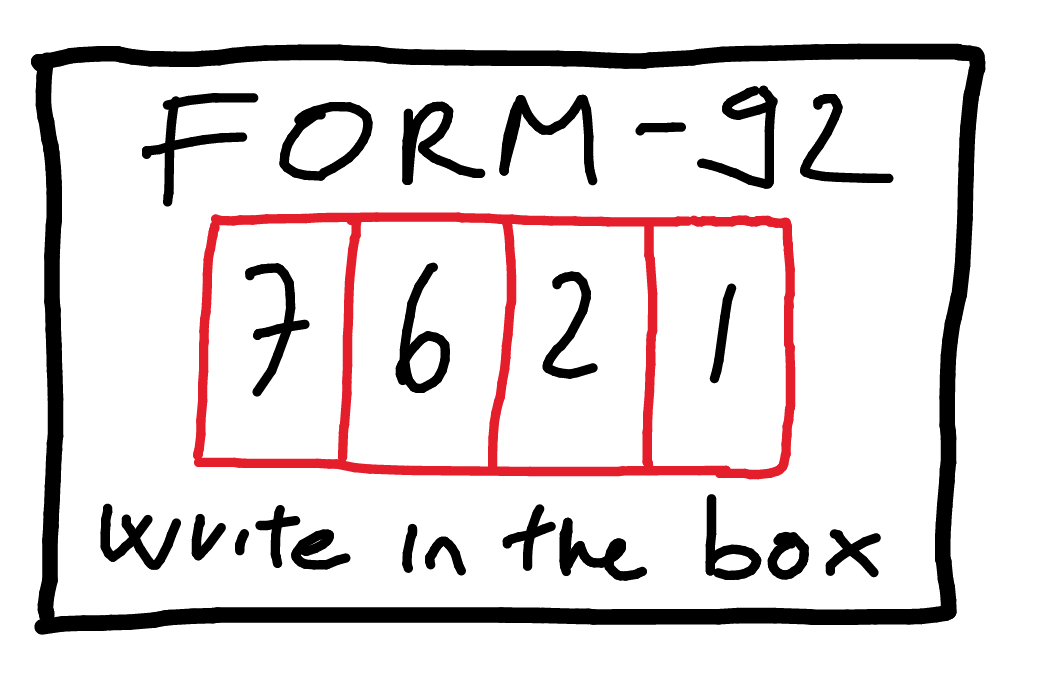 FORM-92
7621
write in the box